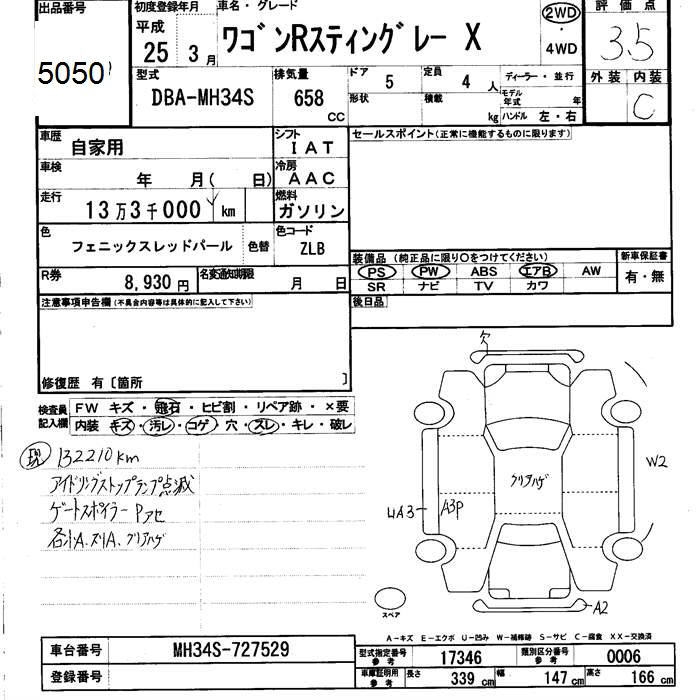 出品番号 初度登録年月 車名・グレード 評価点
5050 平成 25 3月 ワゴンRスティングレー X 2WD・4WD 3.5
型式 排気量 ドア 5 定員 4人 ディーラー・並行 外装 内装
DBA-MH34S 658 CC 形状 積載 kg モデル年式 年 ハンドル 左・右 C
車歴 自家用 シフト IAT セールスポイント(正常に機能するものに限ります)
車検 年 月( 日) 冷房 AAC
走行 13万3千000 km 燃料 ガソリン
色 フェニックスレッドパール 色替 色コード ZLB
装備品(純正品に限り○をつけてください) 新車保証書
R券 8,930円 名変通知期限 月 日 PS PW ABS エアB AW 有・無
SR ナビ TV カワ
注意事項申告欄(不具合内容等は具体的に記入して下さい) 後日品
修復歴 有〔箇所 〕
検査員記入欄 FW キズ・飛石・ヒビ割・リペア跡・×要
内装 キズ・汚レ・コゲ・穴・スレ・キレ・破レ
現 132210km
アイドリングストップランプ点滅
ゲートスポイラーPアセ
各小A.ズリA.クリアハゲ
欠
W2
クリアハゲ
UA3 A3P
A2
スペア
A-キズ E-エクボ U-凹み W-補修跡 S-サビ C-腐食 XX-交換済
車台番号 MH34S-727529 型式指定番号 参考 17346 類別区分番号 参考 0006
登録番号 車庫証明用 参考 長さ 339 cm 幅 147 cm 高さ 166 cm